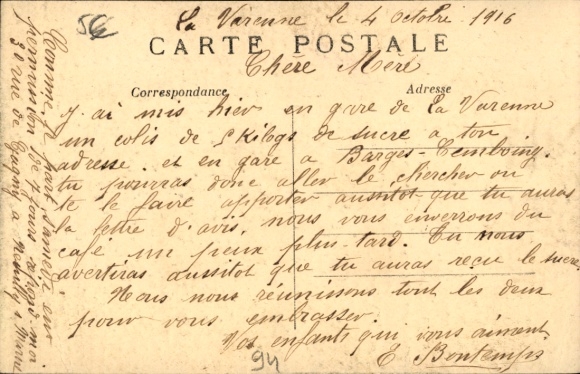 5€
La Varenne le 4 Octobre 1916
CARTE POSTALE
Chère Mère
Correspondance
Adresse
J'ai mis hier en gare de La Varenne
un colis de 5 Kilogs de sucre a ton
adresse. et en gare a Barges-Cemboing.
tu pourras donc aller le chercher ou
te le faire apporter aussitot que tu auras
la lettre d'avis, nous vous enverrons du
café un peux plus-tard. Tu nous
avertiras aussitot que tu auras reçu le sucre
Nous nous réunissons tout les deux
pour vous embrasser.
Vos enfants qui vous aiment
E Bontemps
94
Comme je part samedi
7 jours
rue de Gagny a Neuilly s Marne